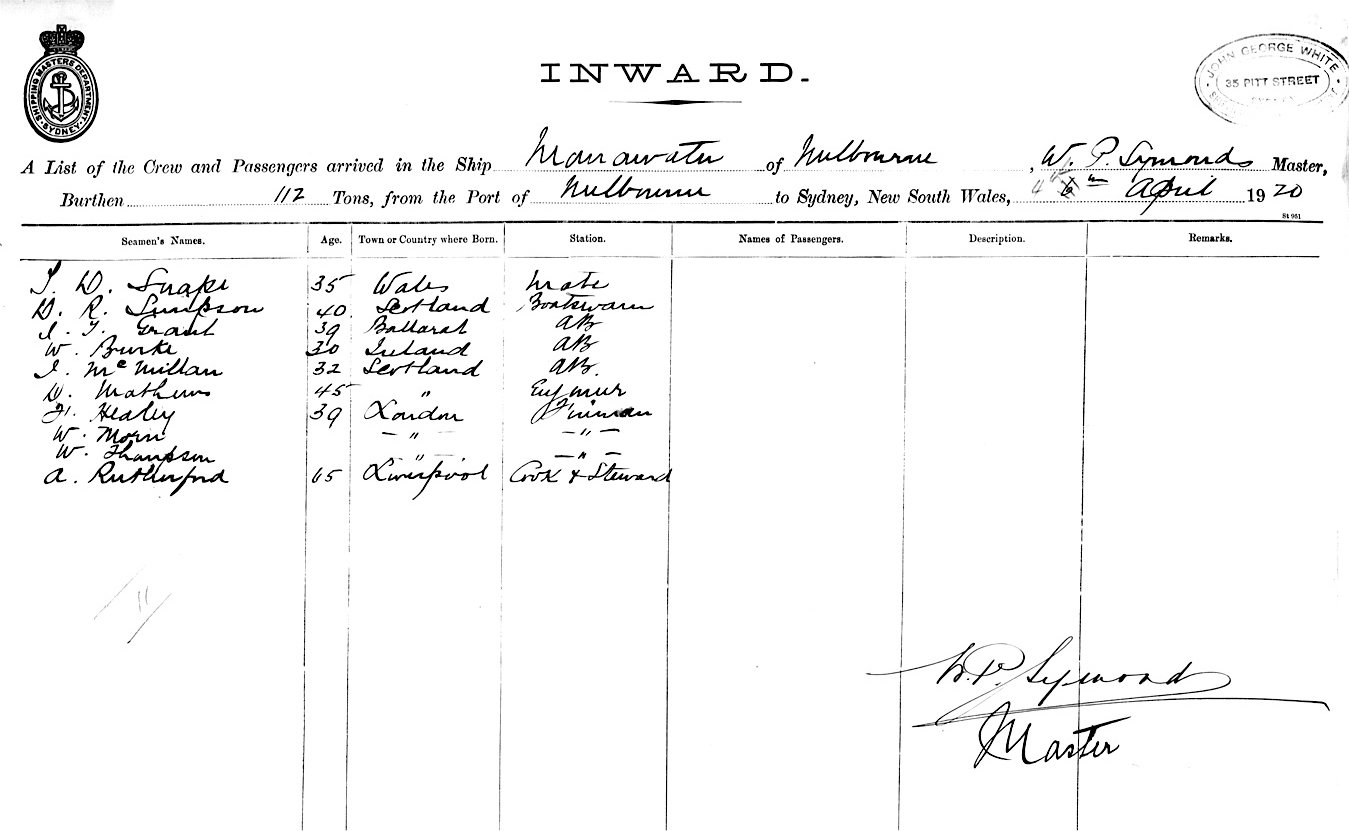 SHIPPING MASTERS DEPARTMENT SYDNEY
INWARD.
JOHN GEORGE WHITE
35 PITT STREET
SYDNEY
A List of the Crew and Passengers arrived in the Ship Manawatu of Melbourne, W. P. Symonds Master,
Burthen 112 Tons, from the Port of Melbourne to Sydney, New South Wales, April 1920
St 961
Seamen's Names. Age. Town or Country where Born. Station. Names of Passengers. Description. Remarks.
D. Snape 35 Wales Mate
D. R. Simpson 40 Scotland Boatswain
Grant 39 Ballarat AB
W. Burke 30 Ireland AB
McMillan 32 Scotland AB.
D. Mathews 45 " Engineer
H. Healey 39 London Fireman
W. — " — — " —
W. Thompson — " — — " —
A. Rutherford 65 Liverpool Cook & Steward
11
W. P. Symonds
Master